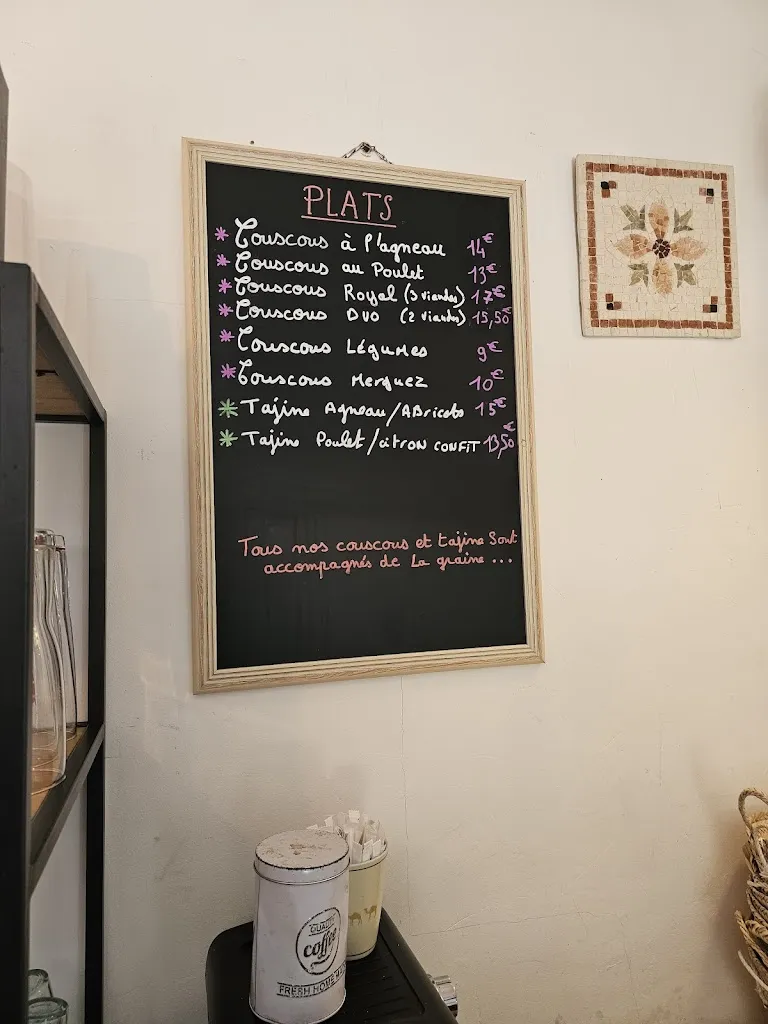 PLATS
* Couscous à l'agneau 14€
* Couscous au Poulet 13€
* Couscous Royal (3 viandes) 17€
* Couscous DUO (2 viandes) 15,50€
* Couscous Légumes 9€
* Couscous Merguez 10€
* Tajine Agneau/ABricots 15€
* Tajine Poulet/citron confit 13,50€
Tous nos couscous et tajine Sont
accompagnés de La graine ...
QUALITY
coffee
FRESH HOME